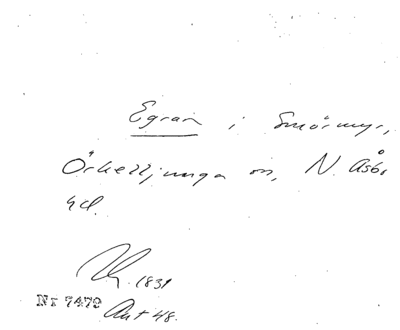 Egran i Smörmyr,
Örkelljunga sn, N. Åsbo
hd.
1831
Nr 7479 Ant 48.